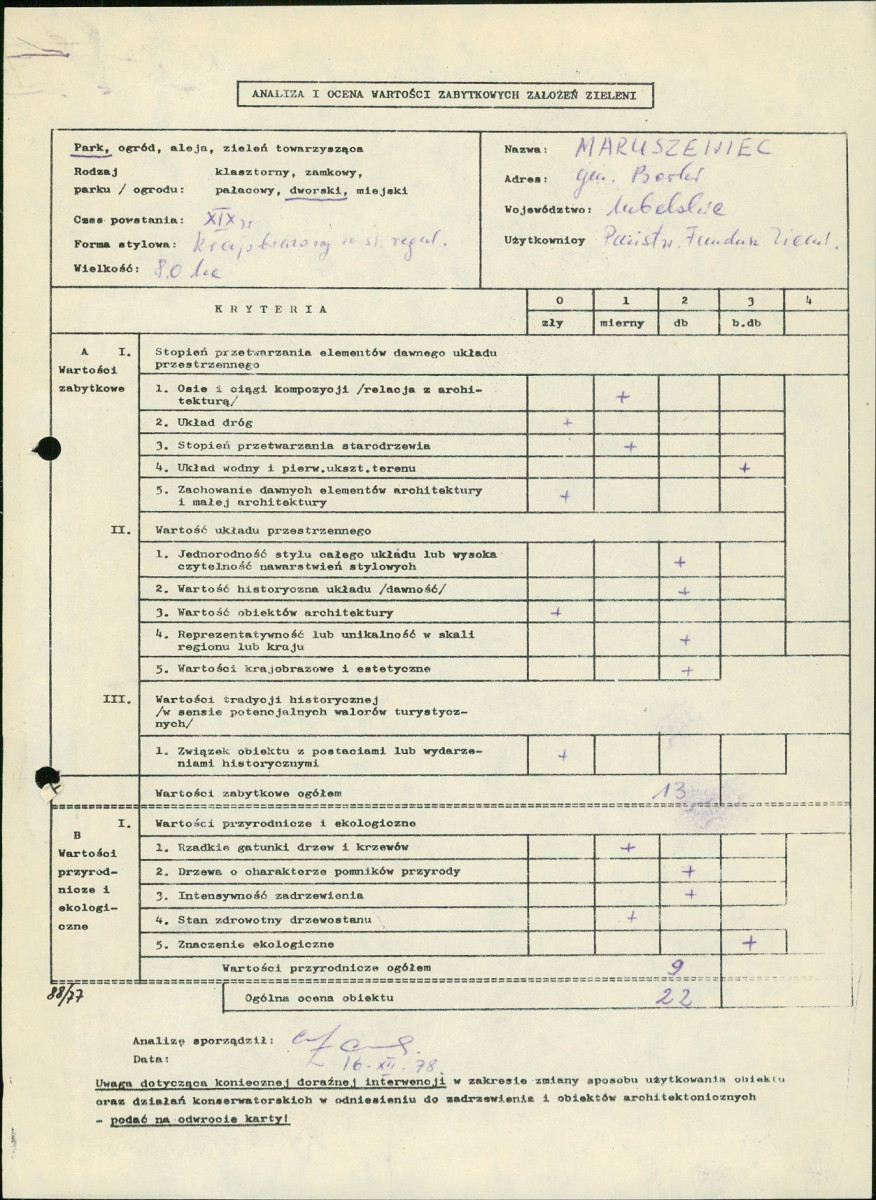 ANALIZA I OCENA WARTOŚCI ZABYTKOWYCH ZAŁOŻEŃ ZIELENI
Park, ogród, aleja, zieleń towarzysząca
Rodzaj klasztorny, zamkowy,
parku / ogrodu: pałacowy, dworski, miejski
Czas powstania: XIX
Forma stylowa: Krajobrazowy
Wielkość: 8.0 ha
Nazwa: MARUSZEWIEC
Adres: gm. Borki
Województwo: lubelskie
Użytkownicy Państw. Fundusz Ziemi.
KRYTERIA
0 1 2 3 4
zły mierny db b.db
A I. Stopień przetwarzania elementów dawnego układu
Wartości przestrzennego
zabytkowe
1. Osie i ciągi kompozycji /relacja z archi-
tekturą/ +
2. Układ dróg +
3. Stopień przetwarzania starodrzewia +
4. Układ wodny i pierw.ukszt.terenu +
5. Zachowanie dawnych elementów architektury
i małej architektury +
II. Wartość układu przestrzennego
1. Jednorodność stylu całego układu lub wysoka
czytelność nawarstwień stylowych +
2. Wartość historyczna układu /dawność/ +
3. Wartość obiektów architektury +
4. Reprezentatywność lub unikalność w skali
regionu lub kraju +
5. Wartości krajobrazowe i estetyczne +
III. Wartości tradycji historycznej
/w sensie potencjalnych walorów turystycz-
nych/
1. Związek obiektu z postaciami lub wydarze-
niami historycznymi +
Wartości zabytkowe ogółem 13
I. Wartości przyrodnicze i ekologiczne
B
Wartości
przyrod-
nicze i
ekologi-
czne
1. Rzadkie gatunki drzew i krzewów +
2. Drzewa o charakterze pomników przyrody +
3. Intensywność zadrzewienia +
4. Stan zdrowotny drzewostanu +
5. Znaczenie ekologiczne +
Wartości przyrodnicze ogółem 9
88/77 Ogólna ocena obiektu 22
Analizę sporządził:
Data: 16-XII-78
Uwaga dotycząca koniecznej doraźnej interwencji w zakresie zmiany sposobu użytkowania obiektu
oraz działań konserwatorskich w odniesieniu do zadrzewienia i obiektów architektonicznych
- podać na odwrocie karty!